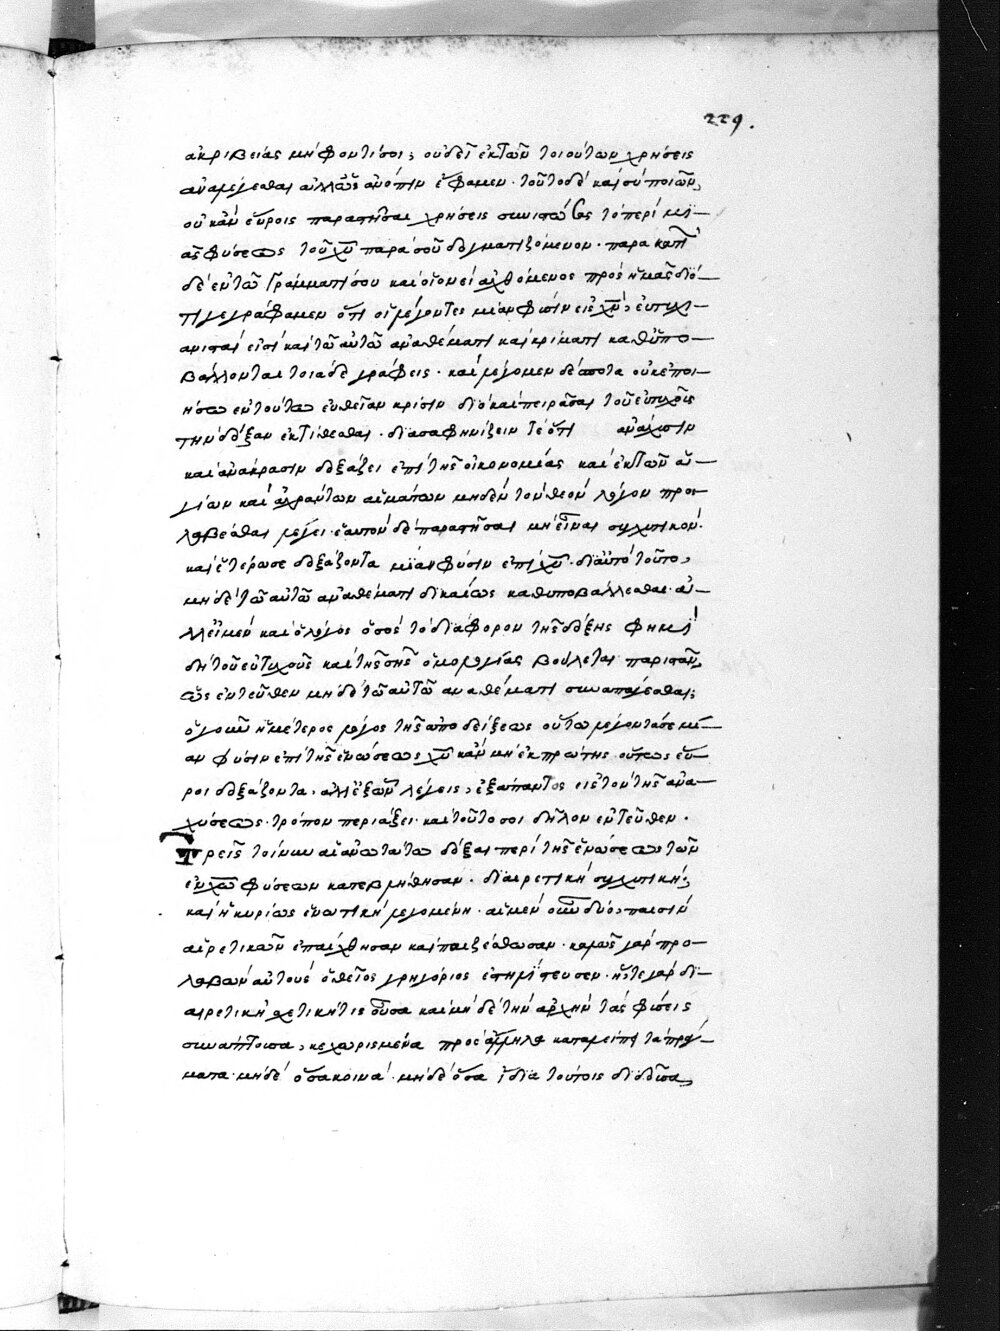 229.
ἀκριβείας μὴ φροντίσοι; οὐδεὶ ἐκ τῶν τοιούτων χρήσεις
ἀναλέγεσθαι ἀλλ' ὡς ἀνόπιν ἔφαμεν. τοῦτο δὲ καὶ σὺ ποιῶν,
οὐκ ἂν εὕροις παραπῆσαι χρήσεις συνιστώσας τὸ περὶ μι-
ᾶς φύσεως τοῦ χυ παρὰ σοῦ δογματιζόμενον. παρακατι
δὲ ἐν τῶ γράμματί σου καὶ οἱονεὶ ἀχθόμενος πρὸς ἡμᾶς διό-
τι γεγράφαμεν ὅτι οἱ λέγοντες μίαν φύσιν εἰς χν, εὐτυχι-
ανισταί εἰσι καὶ τῶ αὐτῶ ἀναθέματι καὶ κρίματι καθυπο-
βάλλονται τοιάδε γράφεις. καὶ λέγομεν δέσποτα οὐκ ἐποι-
ήσω ἐν τούτω εὐθεῖαν κρίσιν διὸ καὶ πειρᾶσαι τοῦ εὐτυχοῦς
τὴν δόξαν ἐκτίθεσθαι. διασαφηνίζειν τὲ ὅτι ἀνάχυσιν
καὶ ἀνάκρασιν δοξάζει ἐπὶ τῆς οἰκονομίας καὶ ἐκ τῶν ἁ-
γίων καὶ ἀχράντων αἱμάτων μηδὲν τὸν θεὸν λόγον προσ-
λαβέσθαι λέγει. ἑαυτὸν δὲ παραστῆσαι μὴ εἶναι συγχυτικὸν.
καὶ ἑτέρωσε δοξάζοντα μίαν φύσιν ἐπὶ χυ. διὰ αὐτὸ τοῦτο,
μηδὲ τῶ αὐτῶ ἀναθέματι δικαίως καθυποβάλλεσθαι. ἀ-
λλ' εἰ μὲν καὶ ὁ λόγος ὅσος τὸ διάφορον τῆς δόξης φημὶ
δὴ τοῦ εὐτυχοῦς καὶ τῆς σῆς ὁμολογίας βούλεται παριστᾶν,
ὡς ἐντεῦθεν μηδὲ τῶ αὐτῶ ἀναθέματι συναπάγεσθαι;
ὅ γοῦν ἡμέτερος λόγος τῆς ἀποδείξεως οὕτω λέγοντά σε μί-
αν φύσιν ἐπὶ τῆς ἑνώσεως χυ κἂν μὴ ἐκ πρώτης οὕτως εὕ-
ροι δοξάζοντα. ἀλλ' ἐξ ὧν λέγεις, ἐξάπαντος εἰς τὸν τῆς ἀνα-
χύσεως τρόπον περιάξει. καὶ τοῦτό σοι δῆλον ἐντεῦθεν.
Τρεῖς τοίνυν αἱ ἀνωτάτω δόξαι περὶ τῆς ἑνώσεως τῶν
ἐν χω φύσεων κατεβλήθησαν. διαιρετικὴ συγχυτικὴ,
καὶ ἡ κυρίως ἑνωτικὴ λεγομένη. αἱ μὲν οὖν δύο, παισὶν
αἱρετικῶν ἐπαίχθησαν καὶ παιζέσθωσαν. καλῶς γὰρ προ-
λαβὼν αὐτοὺς ὁ θεῖος γρηγόριος ἐπημίτευσεν. ἥ τε γὰρ δι-
αιρετικὴ σχετική τις οὖσα καὶ μὴ δὲ τὴν ἀρχὴν τὰς φύσεις
συνάπτουσα, κεχωρισμένα πρὸς ἄλληλα καταλείπει τὰ πρά-
ματα. μηδὲ ὅσα κοινὰ. μηδὲ ὅσα ἴδια τούτοις διδοῦσα,